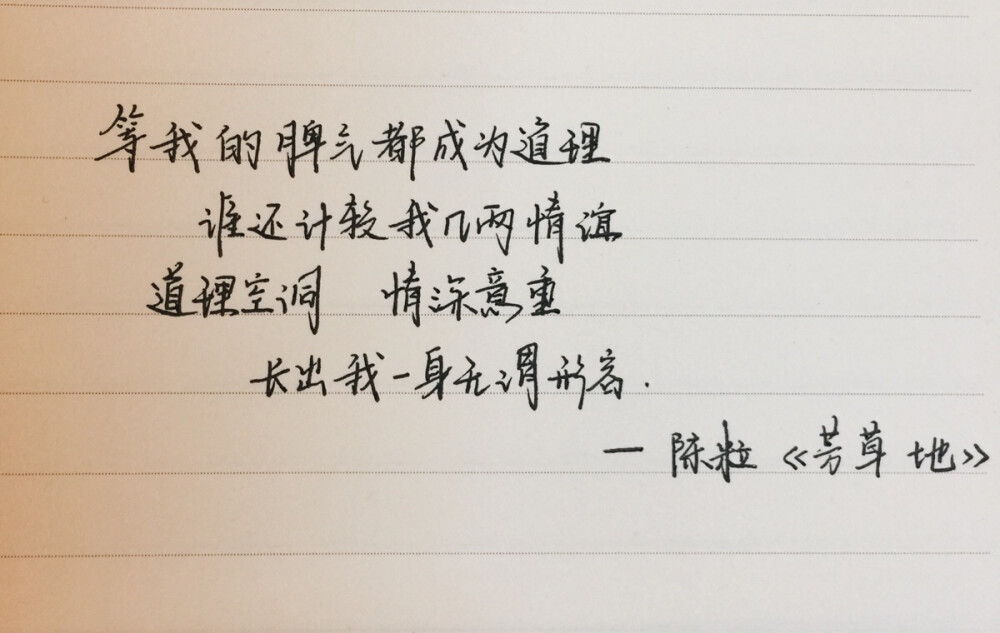 等我的脾气都成为道理
谁还计较我几两情谊
道理空洞 情深意重
长出我一身无谓形容.
— 陈粒《芳草地》